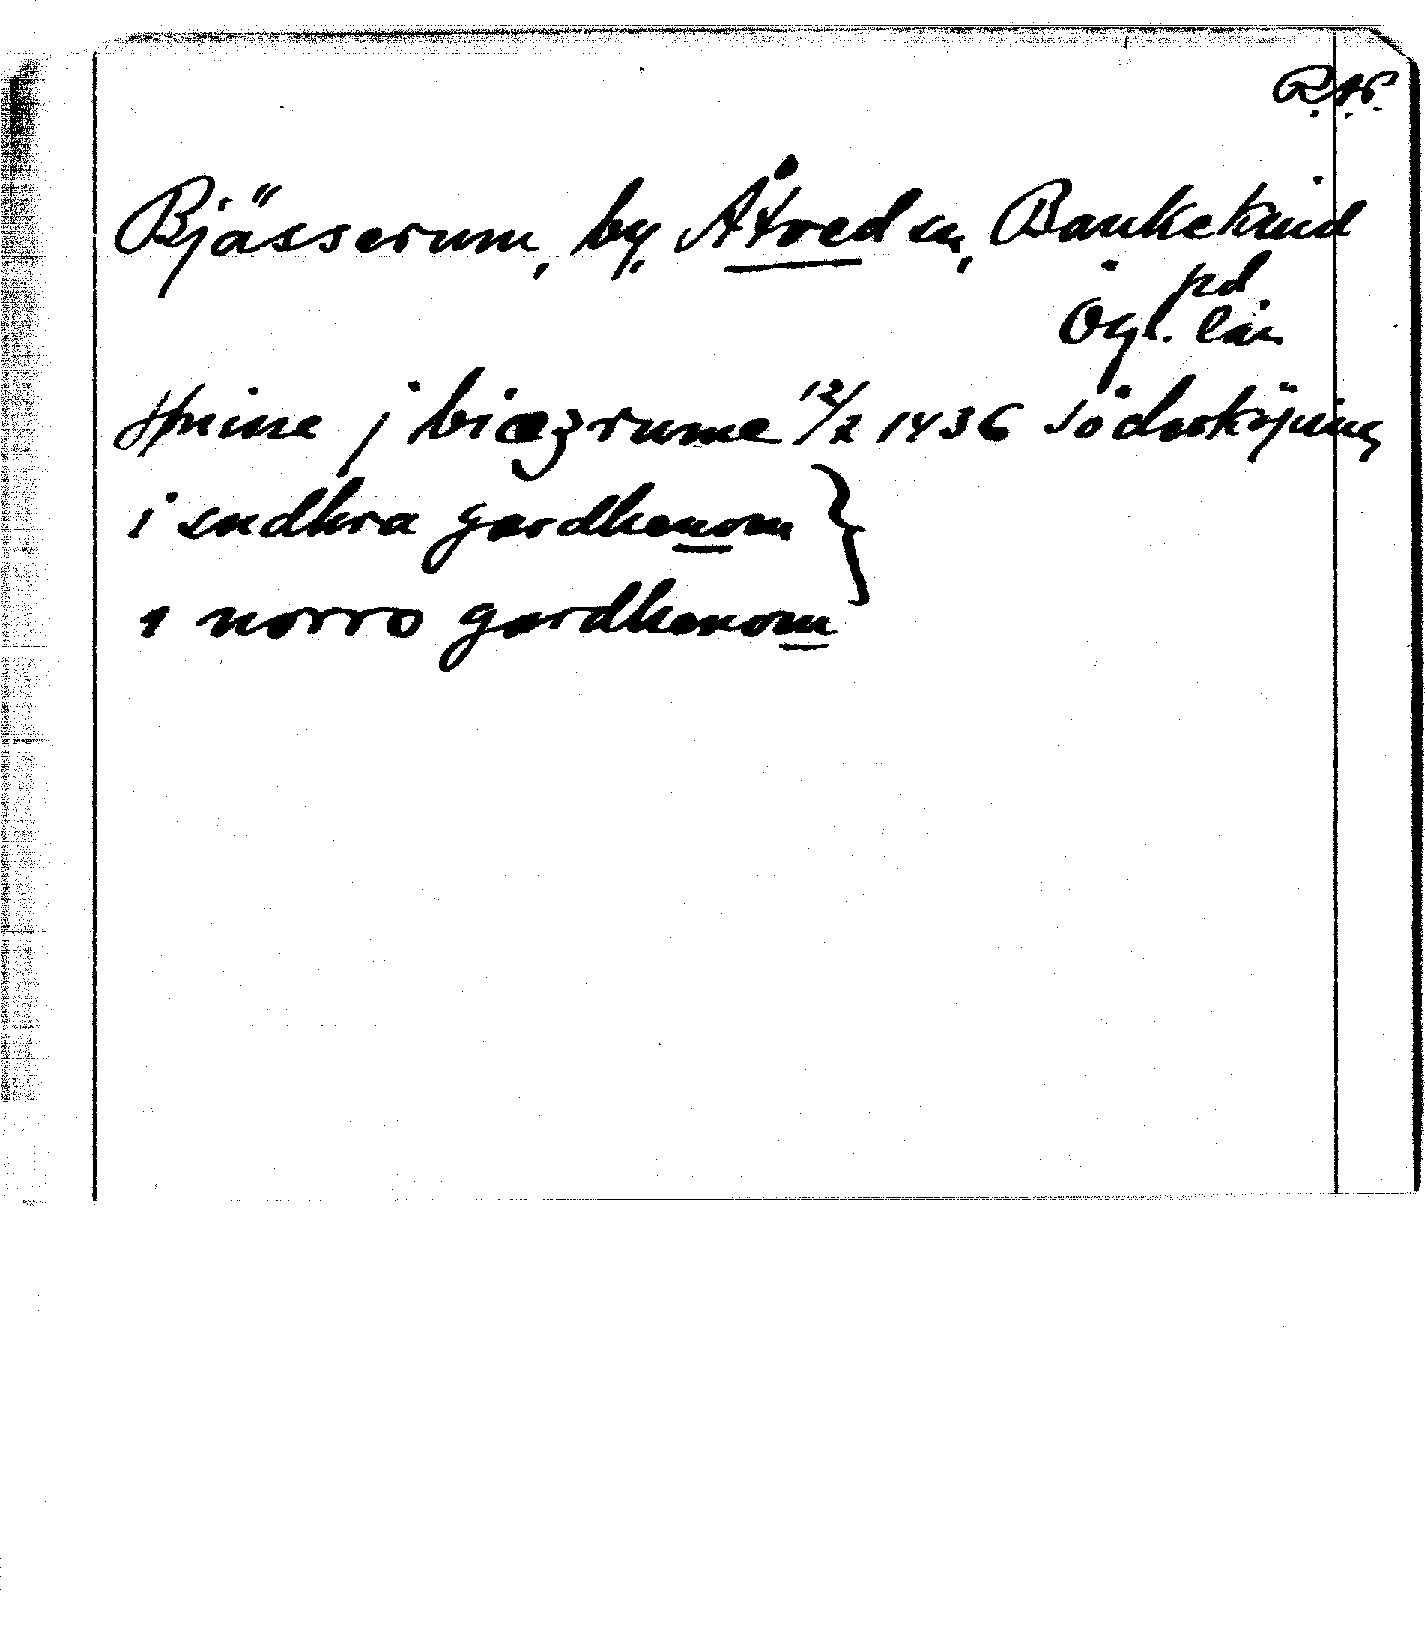 Bjässerum, by, Åtved sn, Bankekind
Ög. län
j biæzrume 12/2 1436 Söderköping
i sudhra gardhenom }
i norro gardhenom